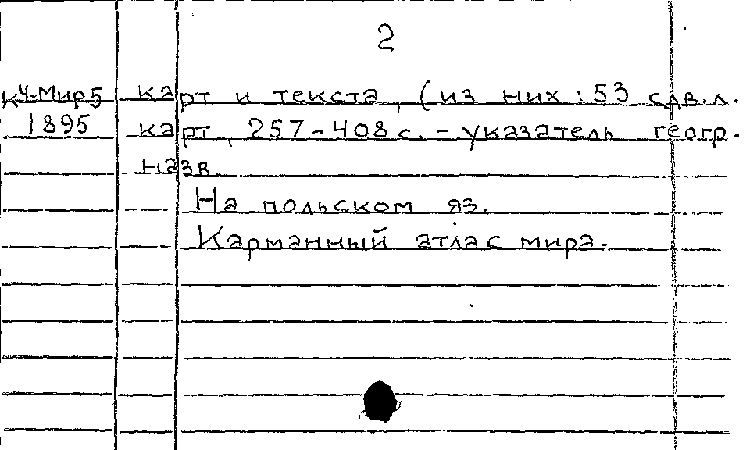 2
К Ч-Мир5 карт и текста, (из них: 53 сдв.л.
1895 карт, 257-408 с. - указатель геогр.
назв.
На польском яз.
Карманный атлас мира.